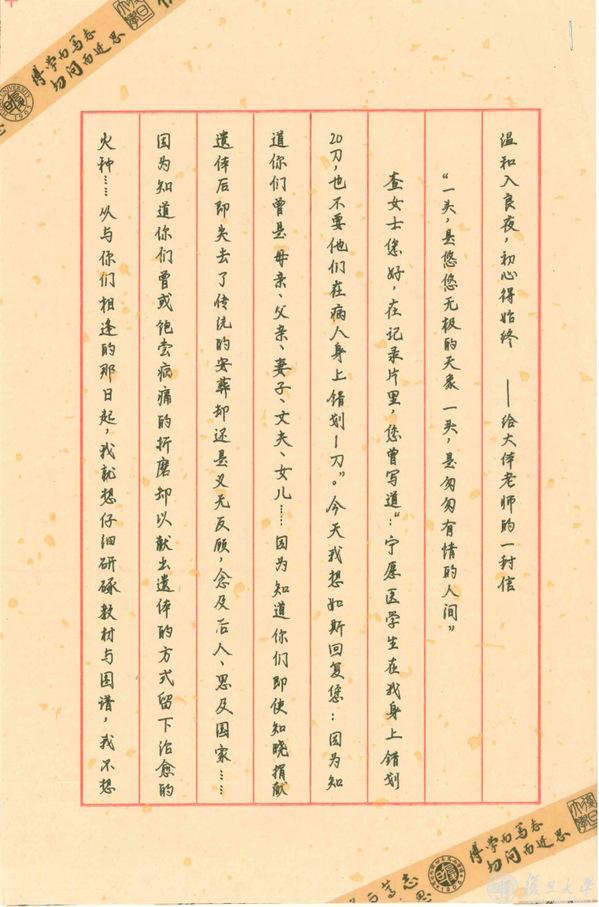 温和入良夜，初心得始终 ——给大体老师的一封信
“一头，是悠悠无极的天象 一头，是匆匆有情的人间”
查女士您好，在记录片里，您曾写道“：宁愿医学生在我身上错划
20刀，也不要他们在病人身上错划1刀”。今天我想如斯回复您：因为知
道你们曾是母亲、父亲、妻子、丈夫、女儿……因为知道你们即使知晓捐献
遗体后即失去了传统的安葬却还是义无反顾，念及后人、思及国家……
因为知道你们曾或饱尝病痛的折磨却以献出遗体的方式留下治愈的
火种……以与你们相逢的那日起，我就想仔细研琢教材与图谱，我不想
博学而笃志
切问而近思
博学而笃志
切问而近思
复旦大学